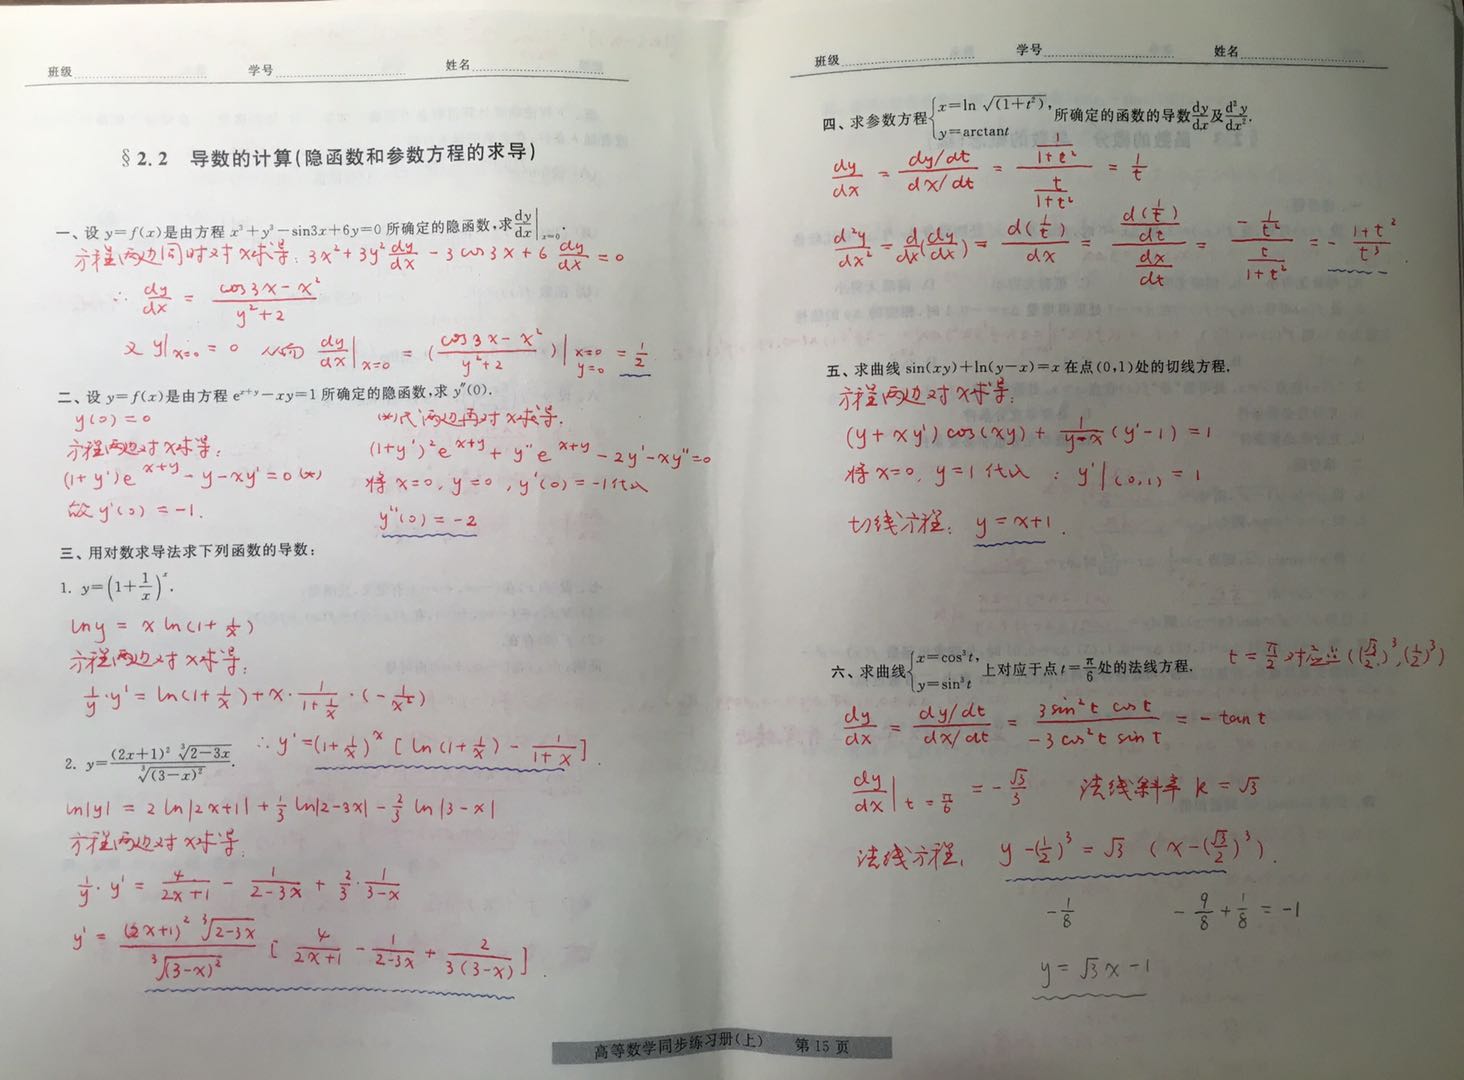 班级 学号 姓名
§2.2 导数的计算(隐函数和参数方程的求导)
一、设 y=f(x)是由方程 x³+y³-sin3x+6y=0 所确定的隐函数,求dy/dx|x=0.
方程两边同时对x求导: 3x²+3y² dy/dx - 3cos3x+6 dy/dx = 0
∴ dy/dx = (cos3x-x²)/(y²+2)
又 y|x=0 = 0 从而 dy/dx|x=0 = ((cos3x-x²)/(y²+2))|x=0 y=0 = 1/2
二、设 y=f(x)是由方程 e^(x+y)-xy=1 所确定的隐函数,求 y″(0).
y(0)=0
方程两边对x求导:
(1+y')e^(x+y)-y-xy'=0 (*)
故 y'(0)=-1.
(*)式两边再对x求导,
(1+y')²e^(x+y)+y''e^(x+y)-2y'-xy''=0
将 x=0, y=0, y'(0)=-1代入
y''(0)=-2
三、用对数求导法求下列函数的导数:
1. y=(1+1/x)^x.
lny = x ln(1+1/x)
方程两边对x求导:
1/y·y' = ln(1+1/x)+x·1/(1+1/x)·(-1/x²)
∴ y'=(1+1/x)^x [ln(1+1/x)-1/(1+x)].
2. y=(2x+1)² ∛(2-3x)/∛(3-x)².
ln|y| = 2ln|2x+1|+1/3 ln|2-3x|-2/3 ln|3-x|
方程两边对x求导
1/y·y' = 4/(2x+1) - 1/(2-3x) + 2/3·1/(3-x)
y' = (2x+1)² ∛(2-3x)/∛(3-x)² [4/(2x+1) - 1/(2-3x) + 2/(3(3-x))].
班级 学号 姓名
四、求参数方程{x=ln √(1+t²), y=arctant 所确定的函数的导数dy/dx及d²y/dx².
dy/dx = (dy/dt)/(dx/dt) = (1/(1+t²))/(t/(1+t²)) = 1/t
d²y/dx² = d/dx(dy/dx) = d(1/t)/dx = (d(1/t)/dt)/(dx/dt) = (-1/t²)/(t/(1+t²)) = -(1+t²)/t³.
五、求曲线 sin(xy)+ln(y-x)=x 在点(0,1)处的切线方程.
方程两边对x求导:
(y+xy')cos(xy)+1/(y-x)(y'-1)=1
将 x=0, y=1代入: y'|(0,1)=1
切线方程: y=x+1.
六、求曲线{x=cos³t, y=sin³t 上对应于点 t=π/6处的法线方程.
t=π/2 对应点((√3/2)³,(1/2)³)
dy/dx = (dy/dt)/(dx/dt) = (3sin²t cost)/(-3cos²t sint) = -tant
dy/dx|t=π/6 = -√3/3 法线斜率 k=√3
法线方程, y-(1/2)³=√3(x-(√3/2)³).
-1/8 -9/8+1/8=-1
y=√3x-1
高等数学同步练习册(上) 第15页